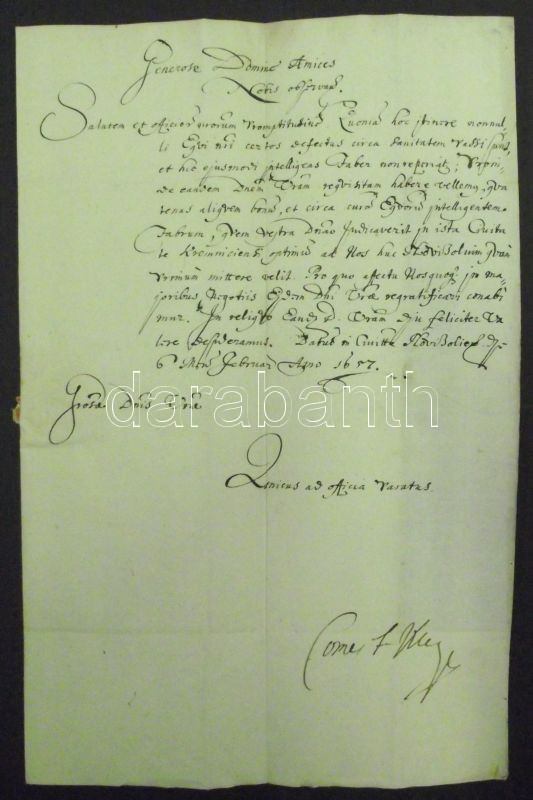 Generose Domine Amice
Nobis observan.
Salutem et officiorum promptitudine Quoniam hoc itinere nonnul-
li Equi nri certos defectus circa sanitatem passi sunt,
et hic ejusmodi intelligens Faber non reperiatr; Proin-
de eandem Dnem Vram requisitam habere vellemus, qua
tenus aliquem bonu, et circa cura Equoru intelligentem
Fabrum, quem Vestra Dnao judicaverit in ista Civita
te Cremniciensi optimu ad Nos huc Novisolium
primum mittere velit. Pro quo affectu Nosquoq; in ma-
joribus Negotiis Ejdem Dni Vrae regratificari conabi
mur. In reliquo Eand. D. Vram diu feliciter va
lere desideramus. Datum in Civitte Novisolien die
6 Mens Februar Anno 1657.
Grosae Dnis Vrae
darabanth
Amicus ad officia paratus.
Comes F